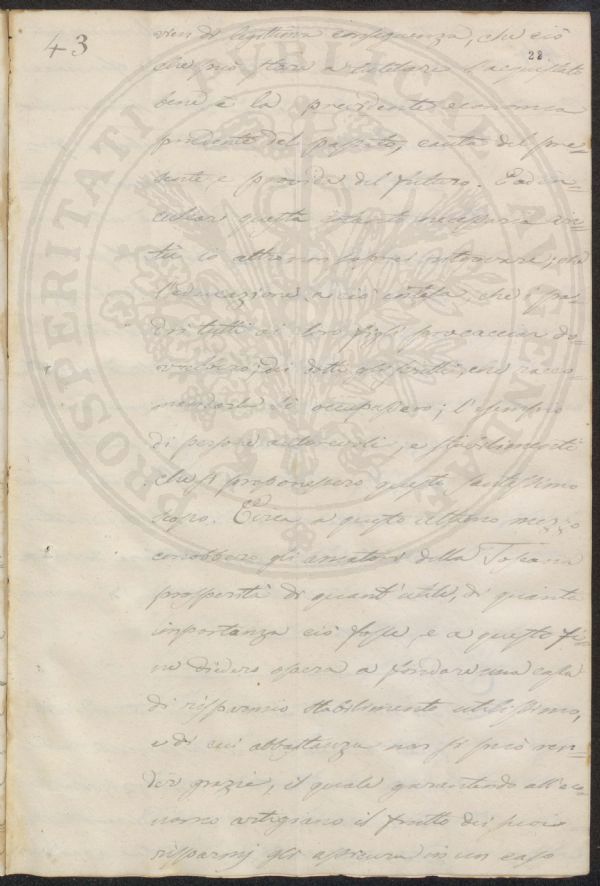 43
28
vien di legittima conseguenza, che ciò
che può star a tutelare l'acquistato
bene è la previdente economia
prudente del passato, cauta del pre-
sente e provida del futuro. Ad in-
culcar questa tanto necessaria vir-
tù io altro non saprei ritrovare, che
l'educazione a ciò intesa, che i pa-
dri tutti ai loro figli procacciar do-
vrebbero; di dotti gli scritti, che racco-
mandarla si occupassero; l'esempio
di persone autorevoli, e stabilimenti
che si proponessero questo santissimo
scopo. Circa a questo ultimo mezzo
conobbero gli amatori della Toscana
prosperità di quant'utile, di quanta
importanza ciò fosse, e a questo fi-
ne diedero opera a fondare una cassa
di risparmio stabilimento utilissimo,
e di cui abbastanza non si può ren-
der grazie, il quale garantendo all'eco-
nomo artigiano il frutto dei suoi
risparmj gli assicura in un caso
PROSPERITATI PVBLICAE AVGENDAE